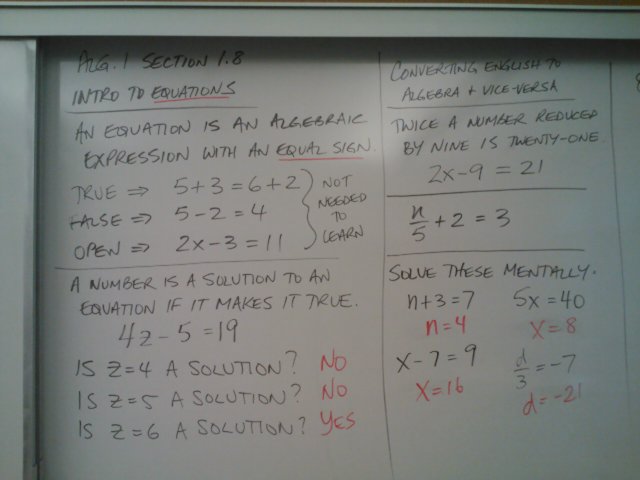 ALG. 1 SECTION 1.8
INTRO TO EQUATIONS
AN EQUATION IS AN ALGEBRAIC
EXPRESSION WITH AN EQUAL SIGN.
TRUE ⇒ 5+3=6+2
FALSE ⇒ 5-2=4
OPEN ⇒ 2x-3=11
NOT
NEEDED
TO
LEARN
A NUMBER IS A SOLUTION TO AN
EQUATION IF IT MAKES IT TRUE.
4z-5=19
IS z=4 A SOLUTION? NO
IS z=5 A SOLUTION? NO
IS z=6 A SOLUTION? YES
CONVERTING ENGLISH TO
ALGEBRA + VICE-VERSA
TWICE A NUMBER REDUCED
BY NINE IS TWENTY-ONE.
2x-9=21
n/5+2=3
SOLVE THESE MENTALLY.
n+3=7 5x=40
n=4 x=8
x-7=9 d/3=-7
x=16 d=-21